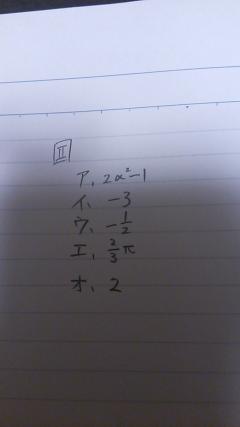 II
ア、2x²-1
イ、-3
ウ、-1/2
エ、2/3π
オ、2